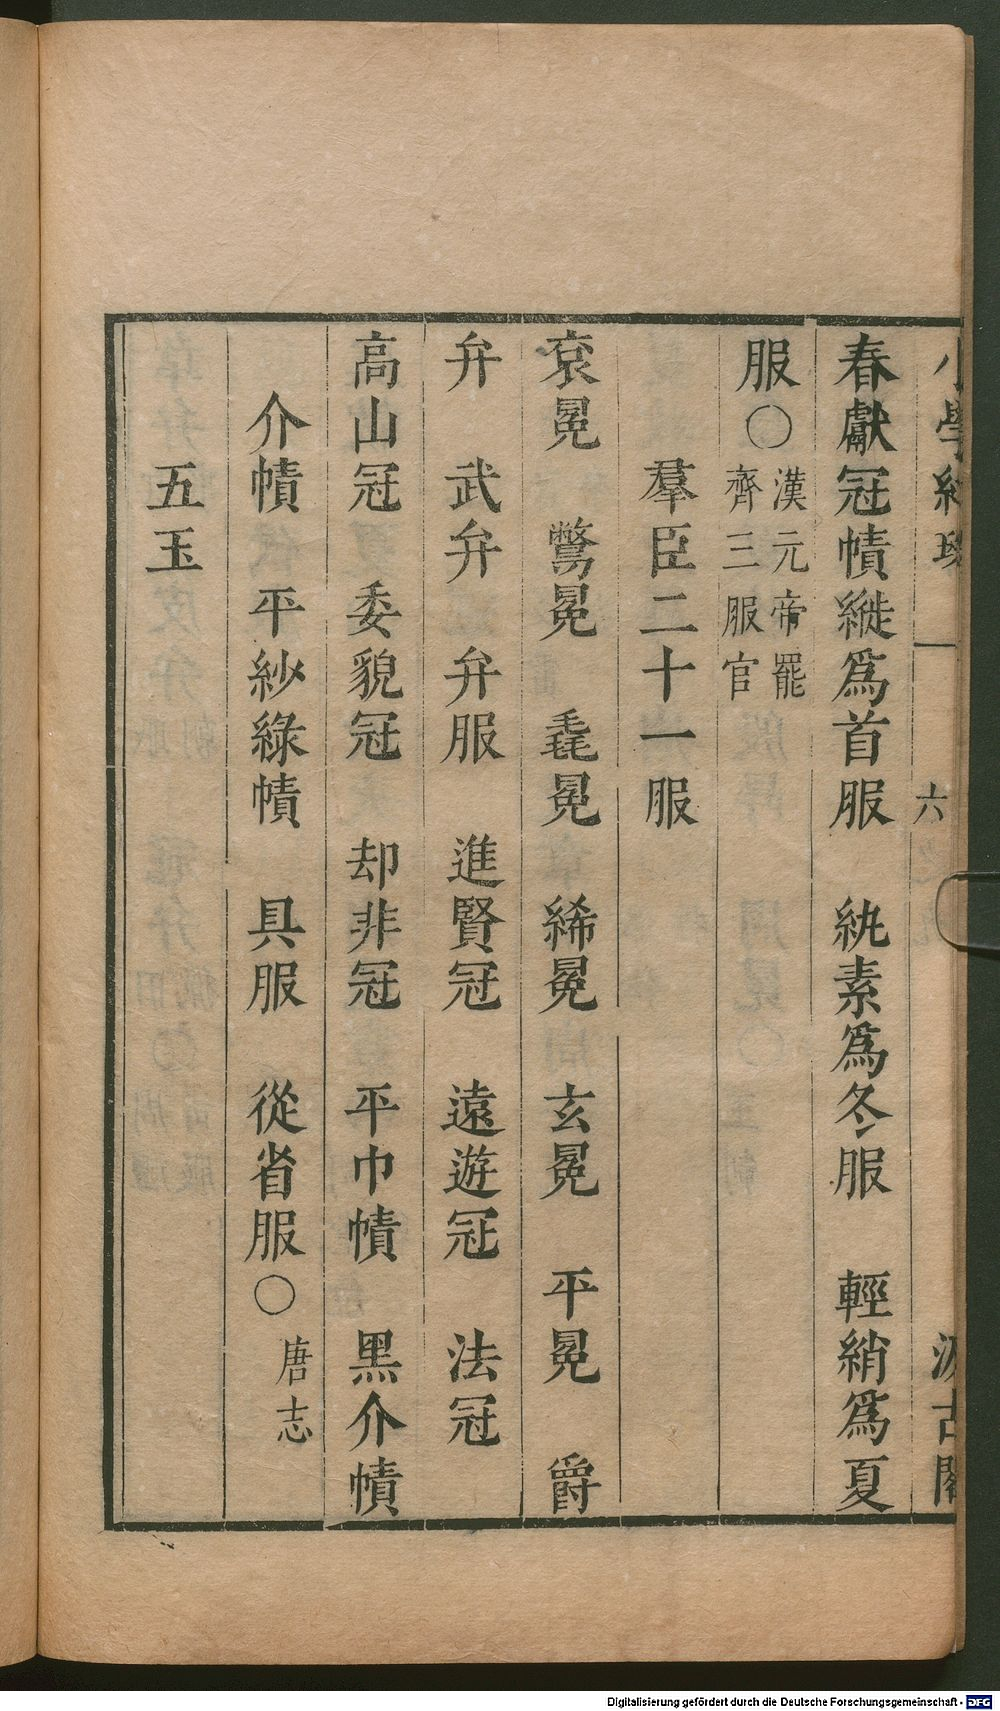 小學紺珠 六 汲古閣
春獻冠幘縰爲首服 紈素爲冬服 輕綃爲夏
服○漢元帝罷
齊三服官
羣臣二十一服
袞冕 驚冕 毳冕 絺冕 玄冕 平冕 爵
弁 武弁 弁服 進賢冠 遠遊冠 法冠
高山冠 委貌冠 却非冠 平巾幘 黑介幘
介幘 平紗綠幘 具服 從省服○唐志
五玉
Digitalisierung gefördert durch die Deutsche Forschungsgemeinschaft - DFG